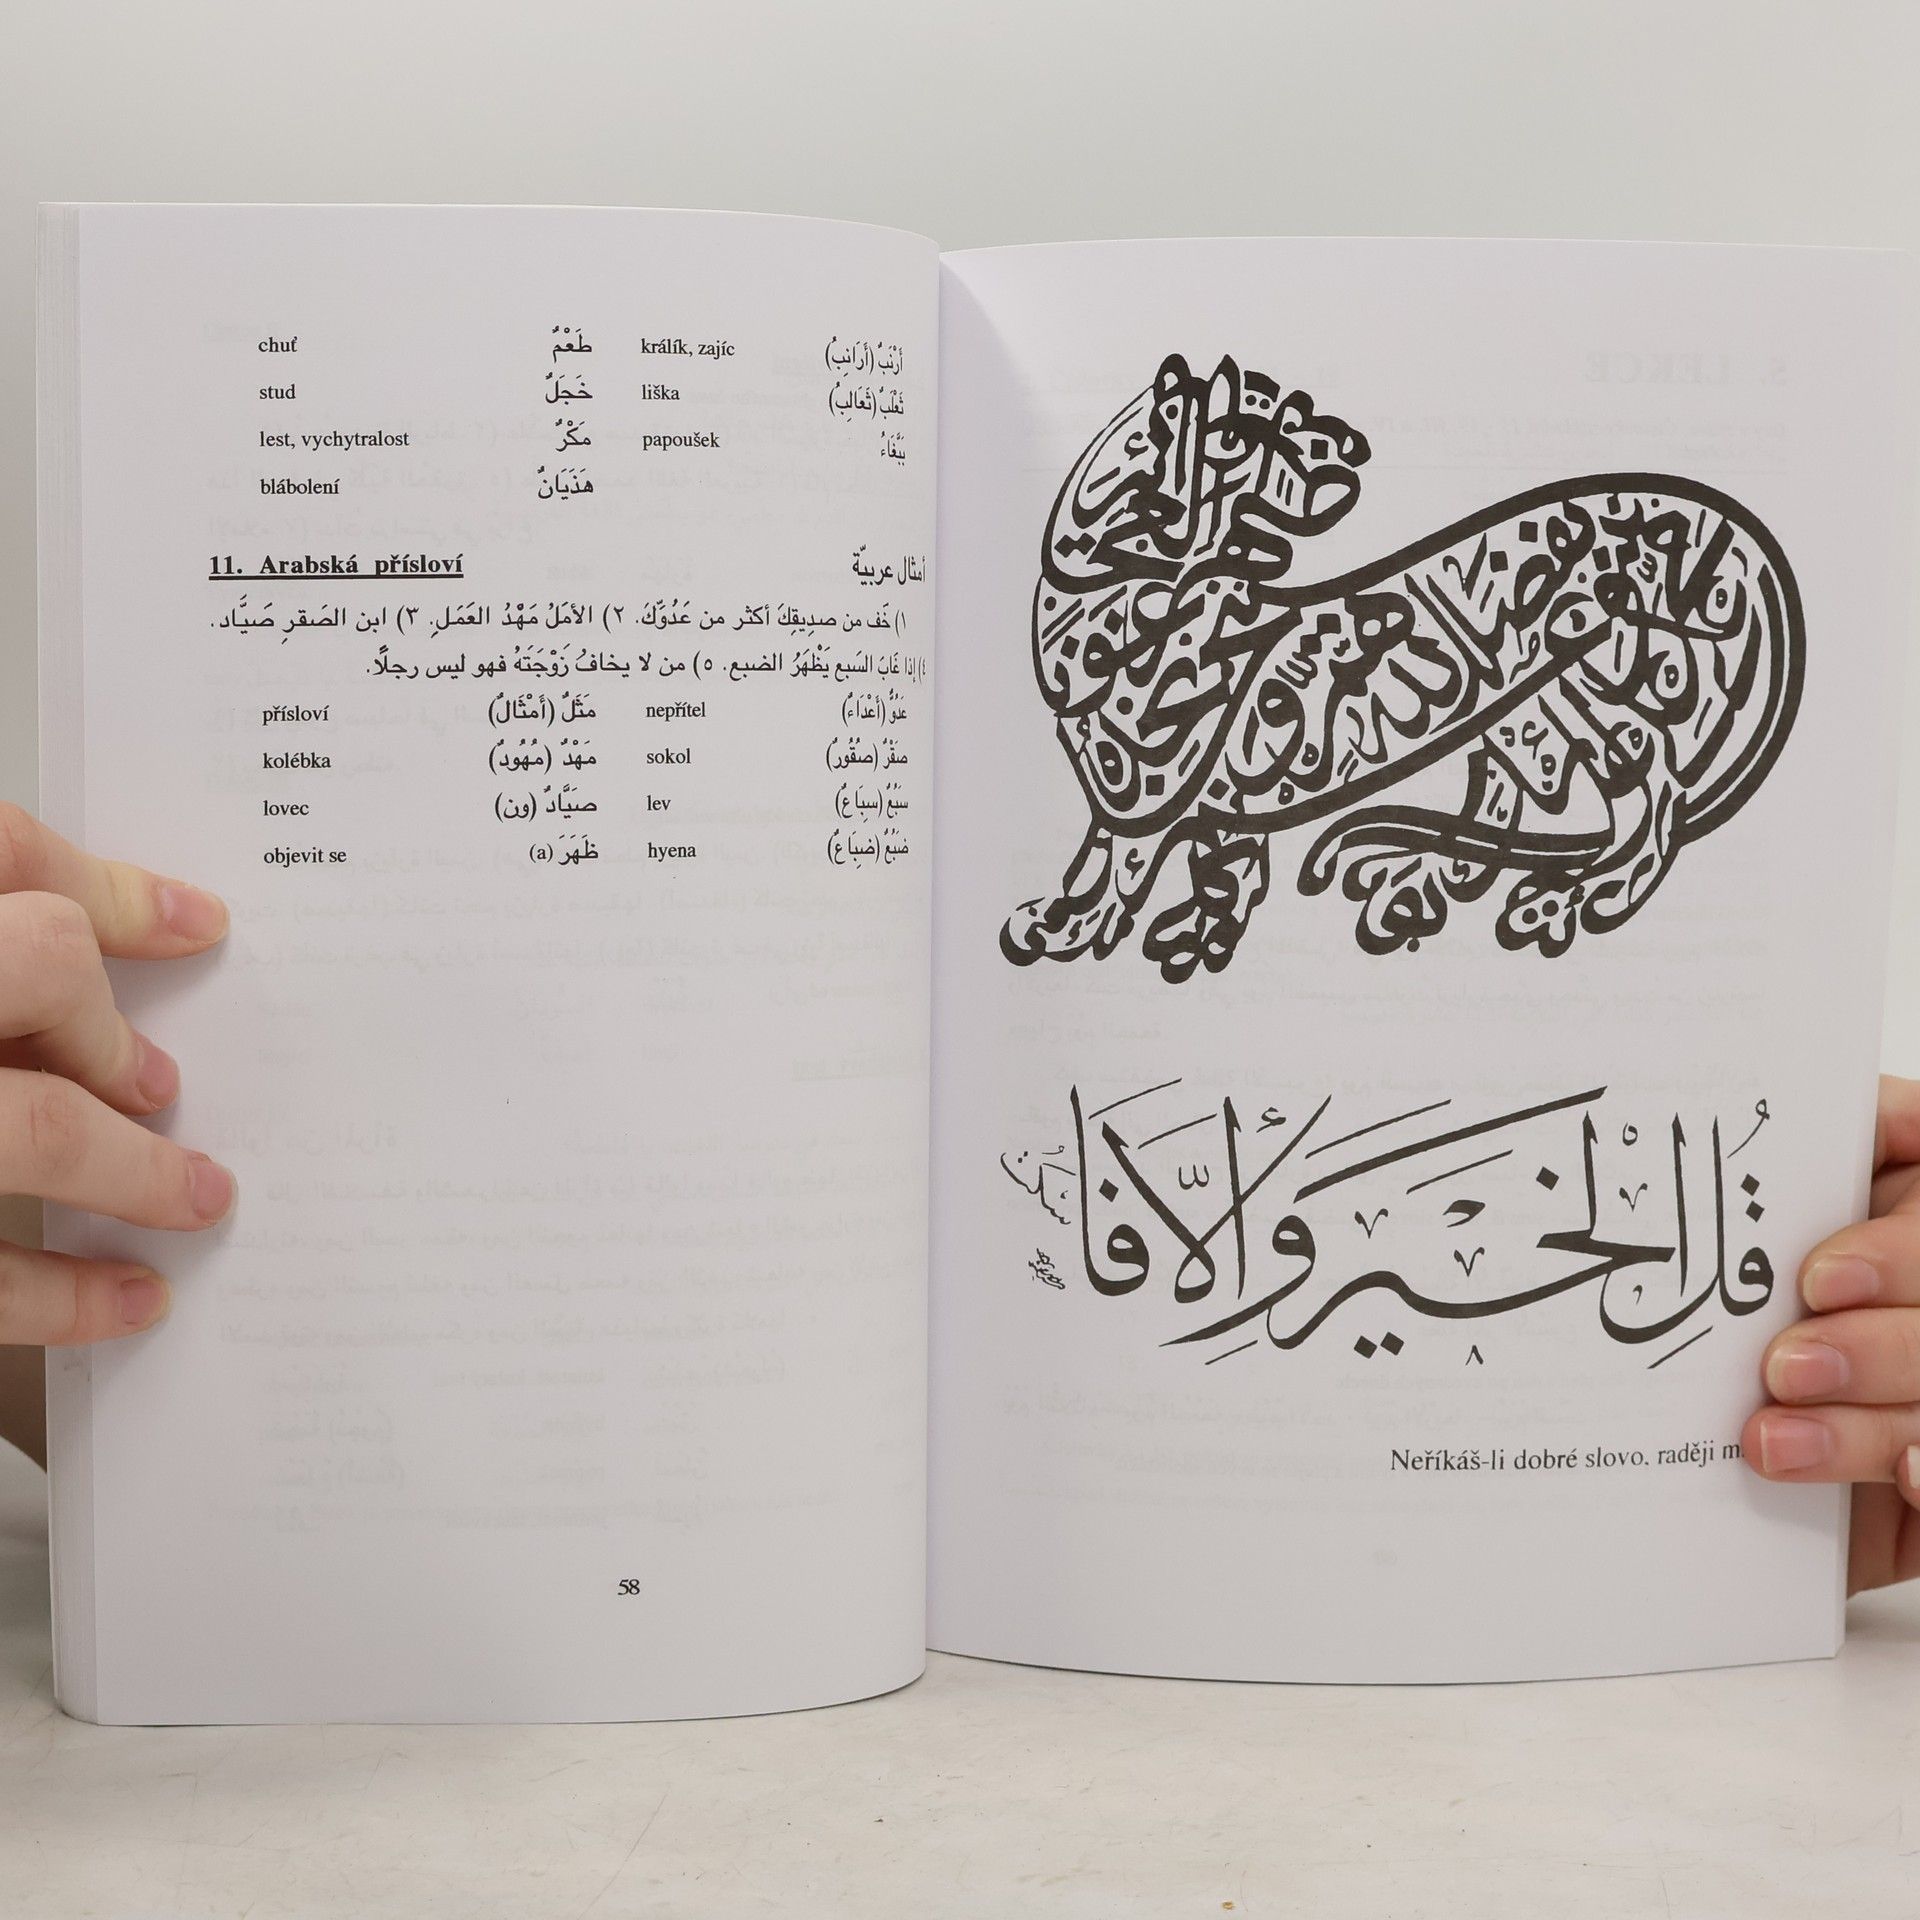 chuť طَعْمٌ králík, zajíc أَرْنَبٌ (أَرَانِبُ)
stud خَجَلٌ liška ثَعْلَبٌ (ثَعَالِبُ)
lest, vychytralost مَكْرٌ papoušek بَبَّغَاءُ
blábolení هَذَيَانٌ
11. Arabská přísloví أمثال عربيّة
١) خَف من صديقِكَ أكثر من عَدُوِّكَ. ٢) الأمَلُ مَهْدُ العَمَلِ. ٣) ابن الصَقرِ صَيَّاد.
٤) إذا غَابَ السَبع يَظْهَرُ الضبع. ٥) من لا يخافُ زَوْجَتَهُ فهو ليس رجلًا.
přísloví مَثَلٌ (أَمْثَالٌ) nepřítel عَدُوٌّ (أَعْدَاءٌ)
kolébka مَهْدٌ (مُهُودٌ) sokol صَقْرٌ (صُقُورٌ)
lovec صَيَّادٌ (ون) lev سَبُعٌ (سِبَاعٌ)
objevit se ظَهَرَ (a) hyena ضَبُعٌ (ضِبَاعٌ)
58
قُلِ الْخَيْرَ وَإِلاَّ فَاسْكُتْ
Neříkáš-li dobré slovo, raději